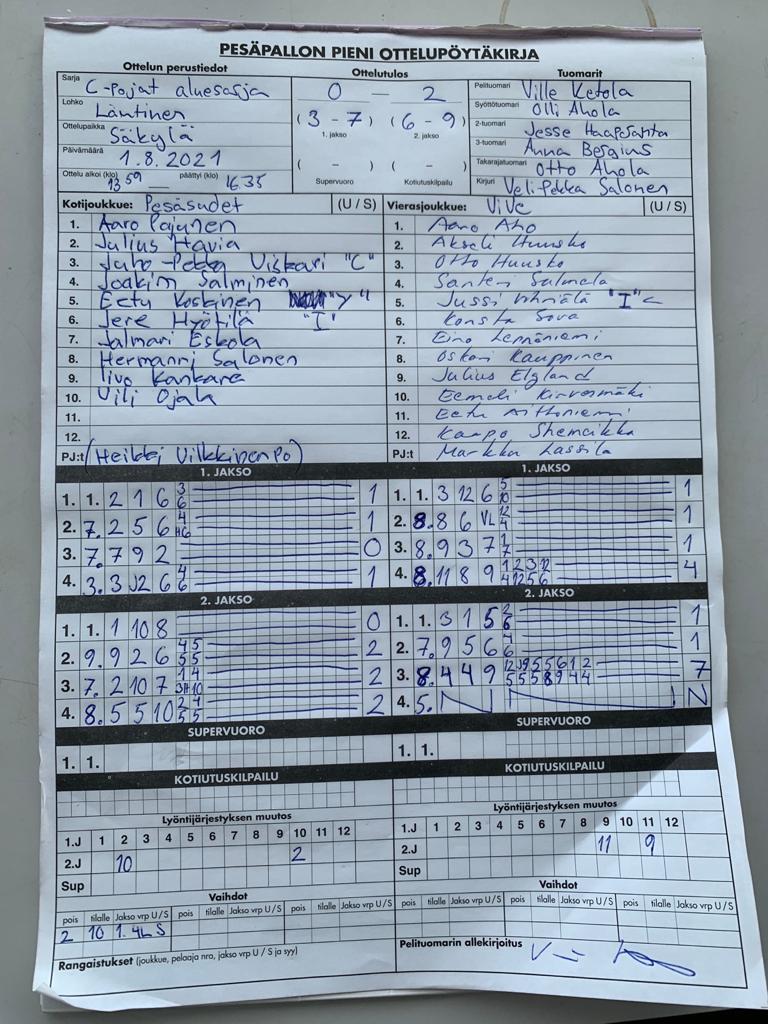 PESÄPALLON PIENI OTTELUPÖYTÄKIRJA
Ottelun perustiedot Ottelutulos Tuomarit
Sarja C-pojat aluesarja
Lohko Läntinen
Ottelupaikka Säkylä
Päivämäärä 1.8.2021
Ottelu alkoi (klo) 13.59 päättyi (klo) 16.35
0 — 2
(3 - 7) (6 - 9)
1. jakso 2. jakso
( - ) ( - )
Supervuoro Kotiutuskilpailu
Pelituomari Ville Ketola
Syöttötuomari Olli Ahola
2-tuomari Jesse Haapasanta
3-tuomari Anna Bergius
Takarajatuomari Otto Ahola
Kirjuri Velipekka Salonen
Kotijoukkue: Pesäsudet (U / S)
1. Aaro Pajunen
2. Julius Havia
3. Juho-Pekka Viskari "C"
4. Joakim Salminen
5. Eetu Koskinen
6. Jere Hyötilä "I"
7. Jalmari Eskola
8. Hermanni Salonen
9. Iivo Kankare
10. Vili Ojala
11.
12.
PJ:t (Heikki Vilkkinenpo)
Vierasjoukkue: ViVe (U / S)
1. Aaro Aho
2. Akseli Huusko
3. Otto Huusko
4. Santeri Salmela
5. Jussi "I"
6. Konsta Sova
7. Eino Leppäniemi
8. Oskari Kauppinen
9. Julius Elgland
10. Eemeli Kirvesmäki
11. Eetu Aittoniemi
12. Kaapo Shemeikka
PJ:t Markku Lassila
1. JAKSO
1. 1. 2 1 6 3 6 1
2. 7. 2 5 6 4 1
3. 7. 7 9 2 0
4. 3. 3 12 6 4 6 1
1. JAKSO
1. 1. 3 12 6 5 10 1
2. 8. 8 6 VL 12 4 1
3. 8. 9 3 7 1 7 1
4. 8. 11 8 9 1 2 3 12 4 12 5 6 4
2. JAKSO
1. 1. 1 10 8 0
2. 9. 9 2 6 4 5 5 5 2
3. 7. 2 10 7 1 4 2
4. 8. 5 5 10 2 4 5 5 2
2. JAKSO
1. 1. 3 1 5 2 6 1
2. 7. 9 5 6 4 6 1
3. 8. 4 4 9 7
4. 5. N N
SUPERVUORO
1. 1.
SUPERVUORO
1. 1.
KOTIUTUSKILPAILU
KOTIUTUSKILPAILU
Lyöntijärjestyksen muutos
1.J 1 2 3 4 5 6 7 8 9 10 11 12
2.J 10 2
Sup
Lyöntijärjestyksen muutos
1.J 1 2 3 4 5 6 7 8 9 10 11 12
2.J 11 9
Sup
Vaihdot
pois tilalle Jakso vrp U / S pois tilalle Jakso vrp U / S pois tilalle Jakso vrp U / S
2 10 1. 4L S
Vaihdot
pois tilalle Jakso vrp U / S pois tilalle Jakso vrp U / S pois tilalle Jakso vrp U / S
Rangaistukset (joukkue, pelaaja nro, jakso vrp U / S ja syy)
Pelituomarin allekirjoitus